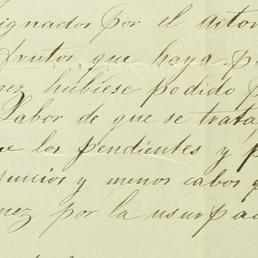 ignados por el actor
frutos que haya p
nez hubiese podido
Labor de que se trata
e los pendientes y p
suncios y menos cabos q
nez por la usurpac